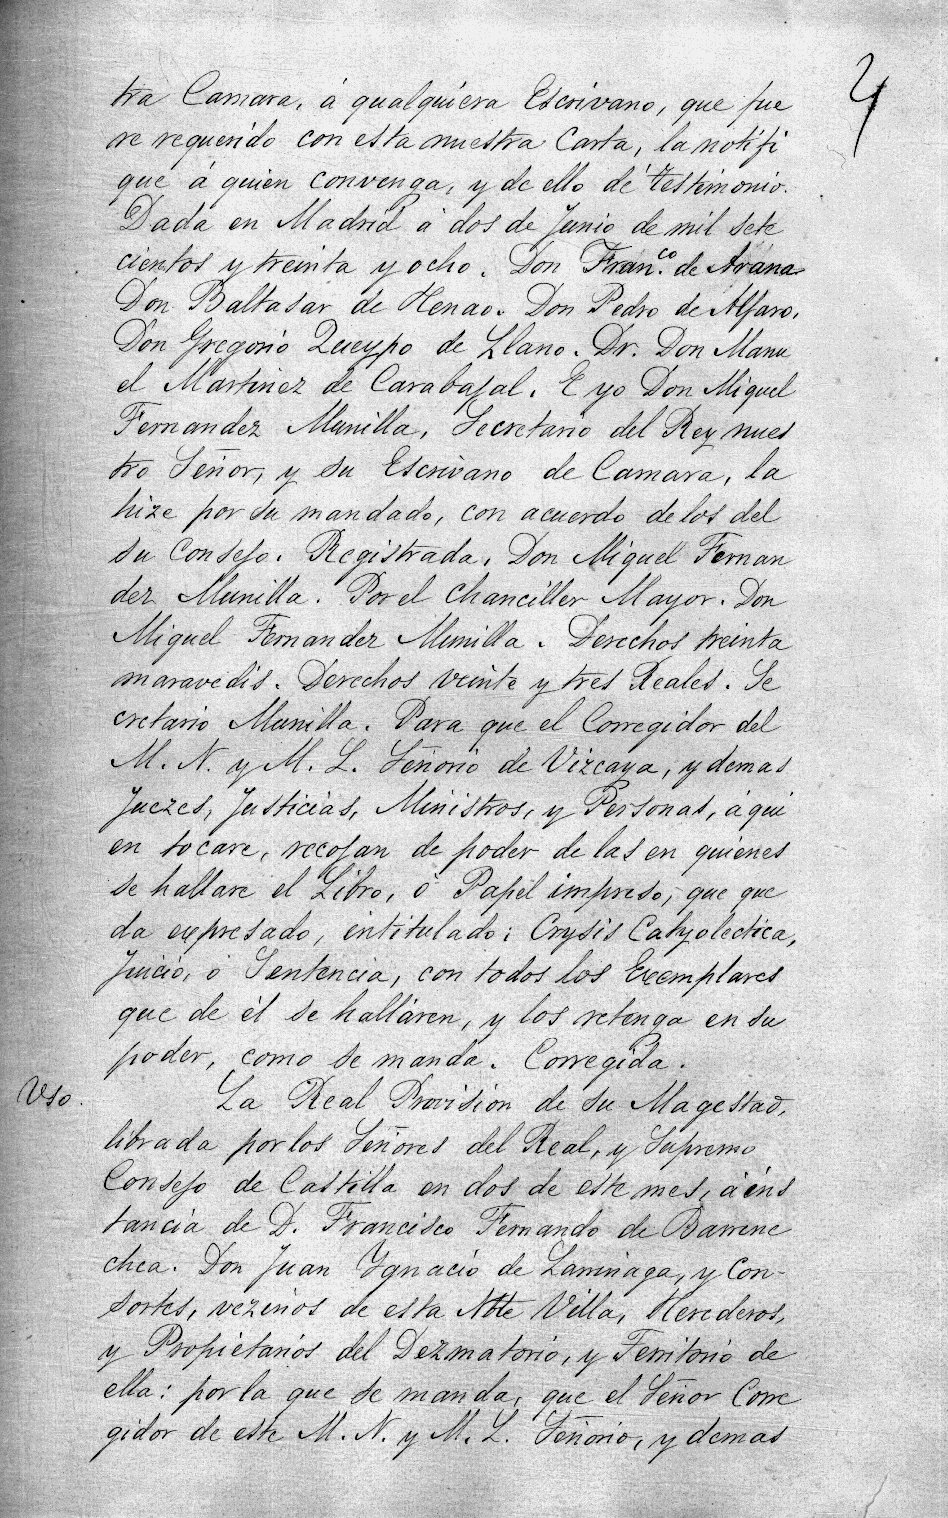 4
tra Camara, á qualquiera Escrivano, que fue
re requerido con esta nuestra Carta, la notifi
que á quien convenga, y de ello dé testimonio.
Dada en Madrid á dos de Junio de mil sete
cientos y treinta y ocho. Don Fran.co de Arana
Don Baltasar de Henao. Don Pedro de Alfaro,
Don Gregorio Queypo de Llano. Dr. Don Manu
el Martinez de Carabajal. E yo Don Miguel
Fernandez Munilla, Secretario del Rey nues
tro Señor, y su Escrivano de Camara, la
hize por su mandado, con acuerdo de los del
su Consejo. Registrada. Don Miguel Fernan
dez Munilla. Por el Chanciller Mayor. Don
Miguel Fernandez Munilla. Derechos treinta
maravedis. Derechos veinte y tres Reales. Se
cretario Munilla. Para que el Corregidor del
M. N. y M. L. Señorio de Vizcaya, y demas
Juezes, Justicias, Ministros, y Personas, á qui
en tocare, recojan de poder de las en quienes
se hallare el Libro, ó Papél impreso, que que
da expresado, intitulado: Crysis Catyolectica,
Juicio, ó Sentencia, con todos los Exemplares
que de él se halláren, y los retenga en su
poder, como se manda. Corregida.
Uso.
La Real Provision de su Magestad,
librada por los Señores del Real, y Supremo
Consejo de Castilla en dos de este mes, á ins
tancia de D. Francisco Fernando de Barrene
chea. Don Juan Ygnacio de Larrinaga, y Con-
sortes, vezinos de esta Nble Villa, Herederos,
y Propietarios del Dezmatorio, y Territorio de
ella: por la que se manda, que el Señor Corre
gidor de este M. N. y M. L. Señorio, y demas